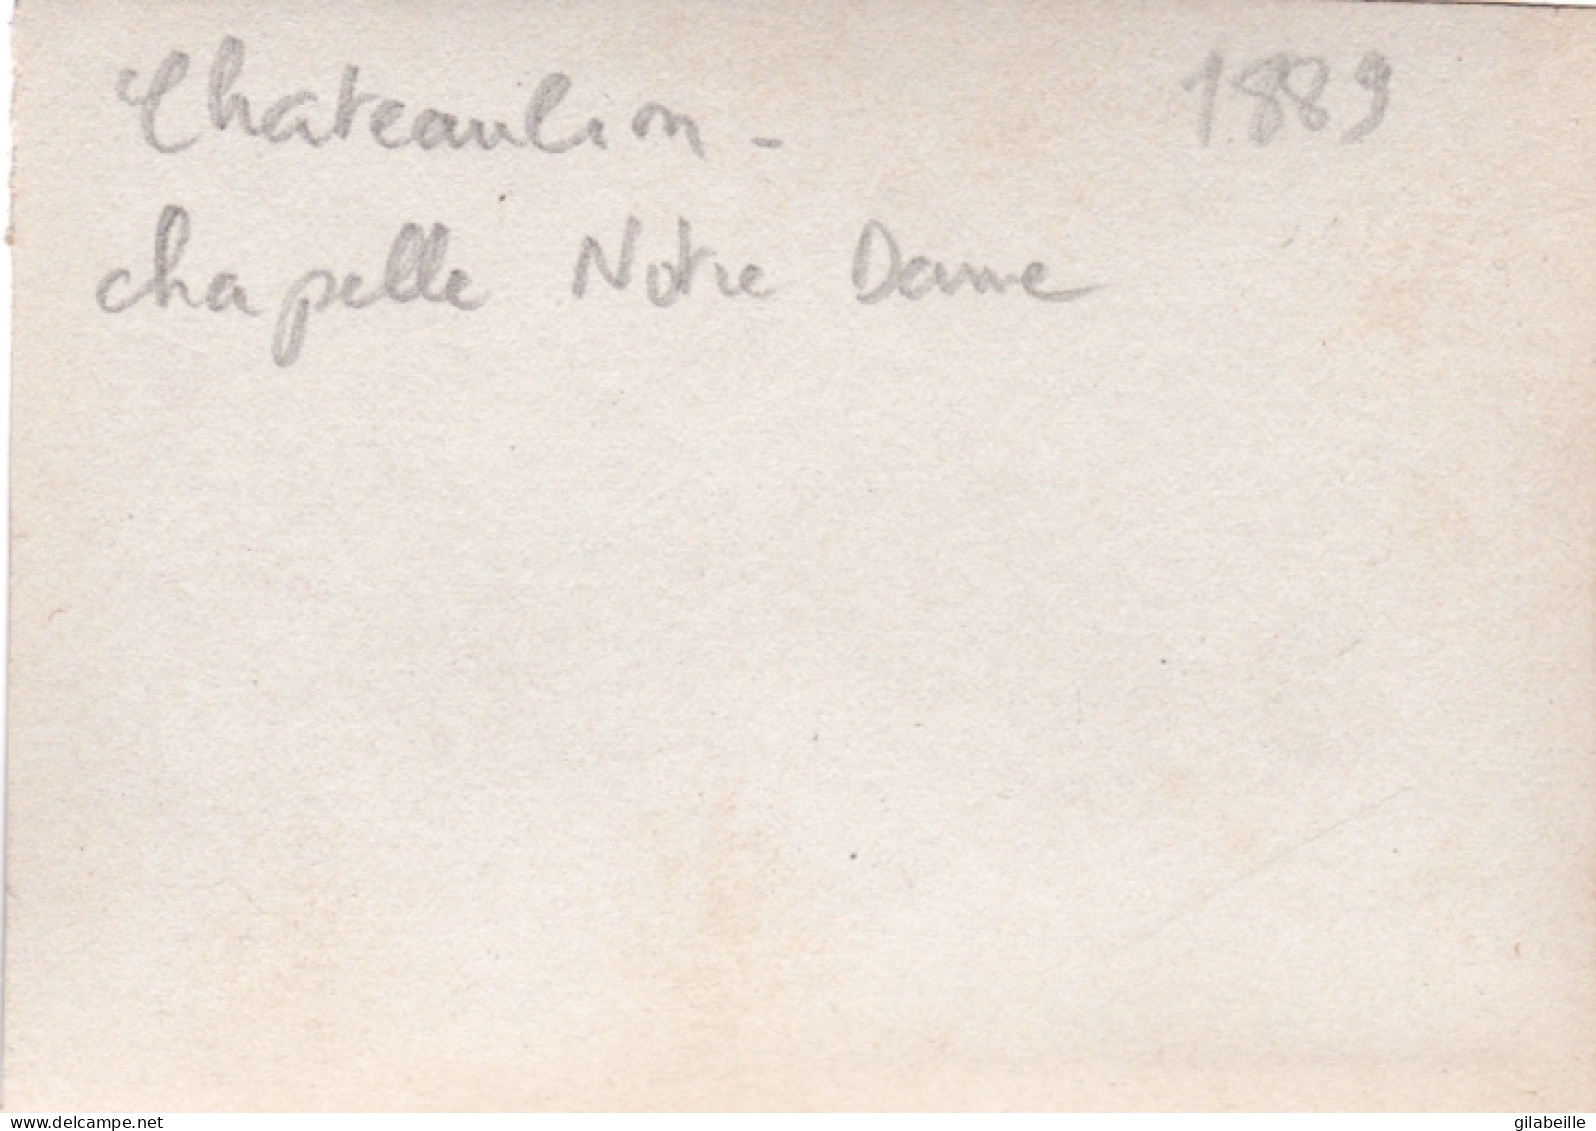 Chateaulion - 1889
chapelle Notre Dame
www.delcampe.net gilabeille